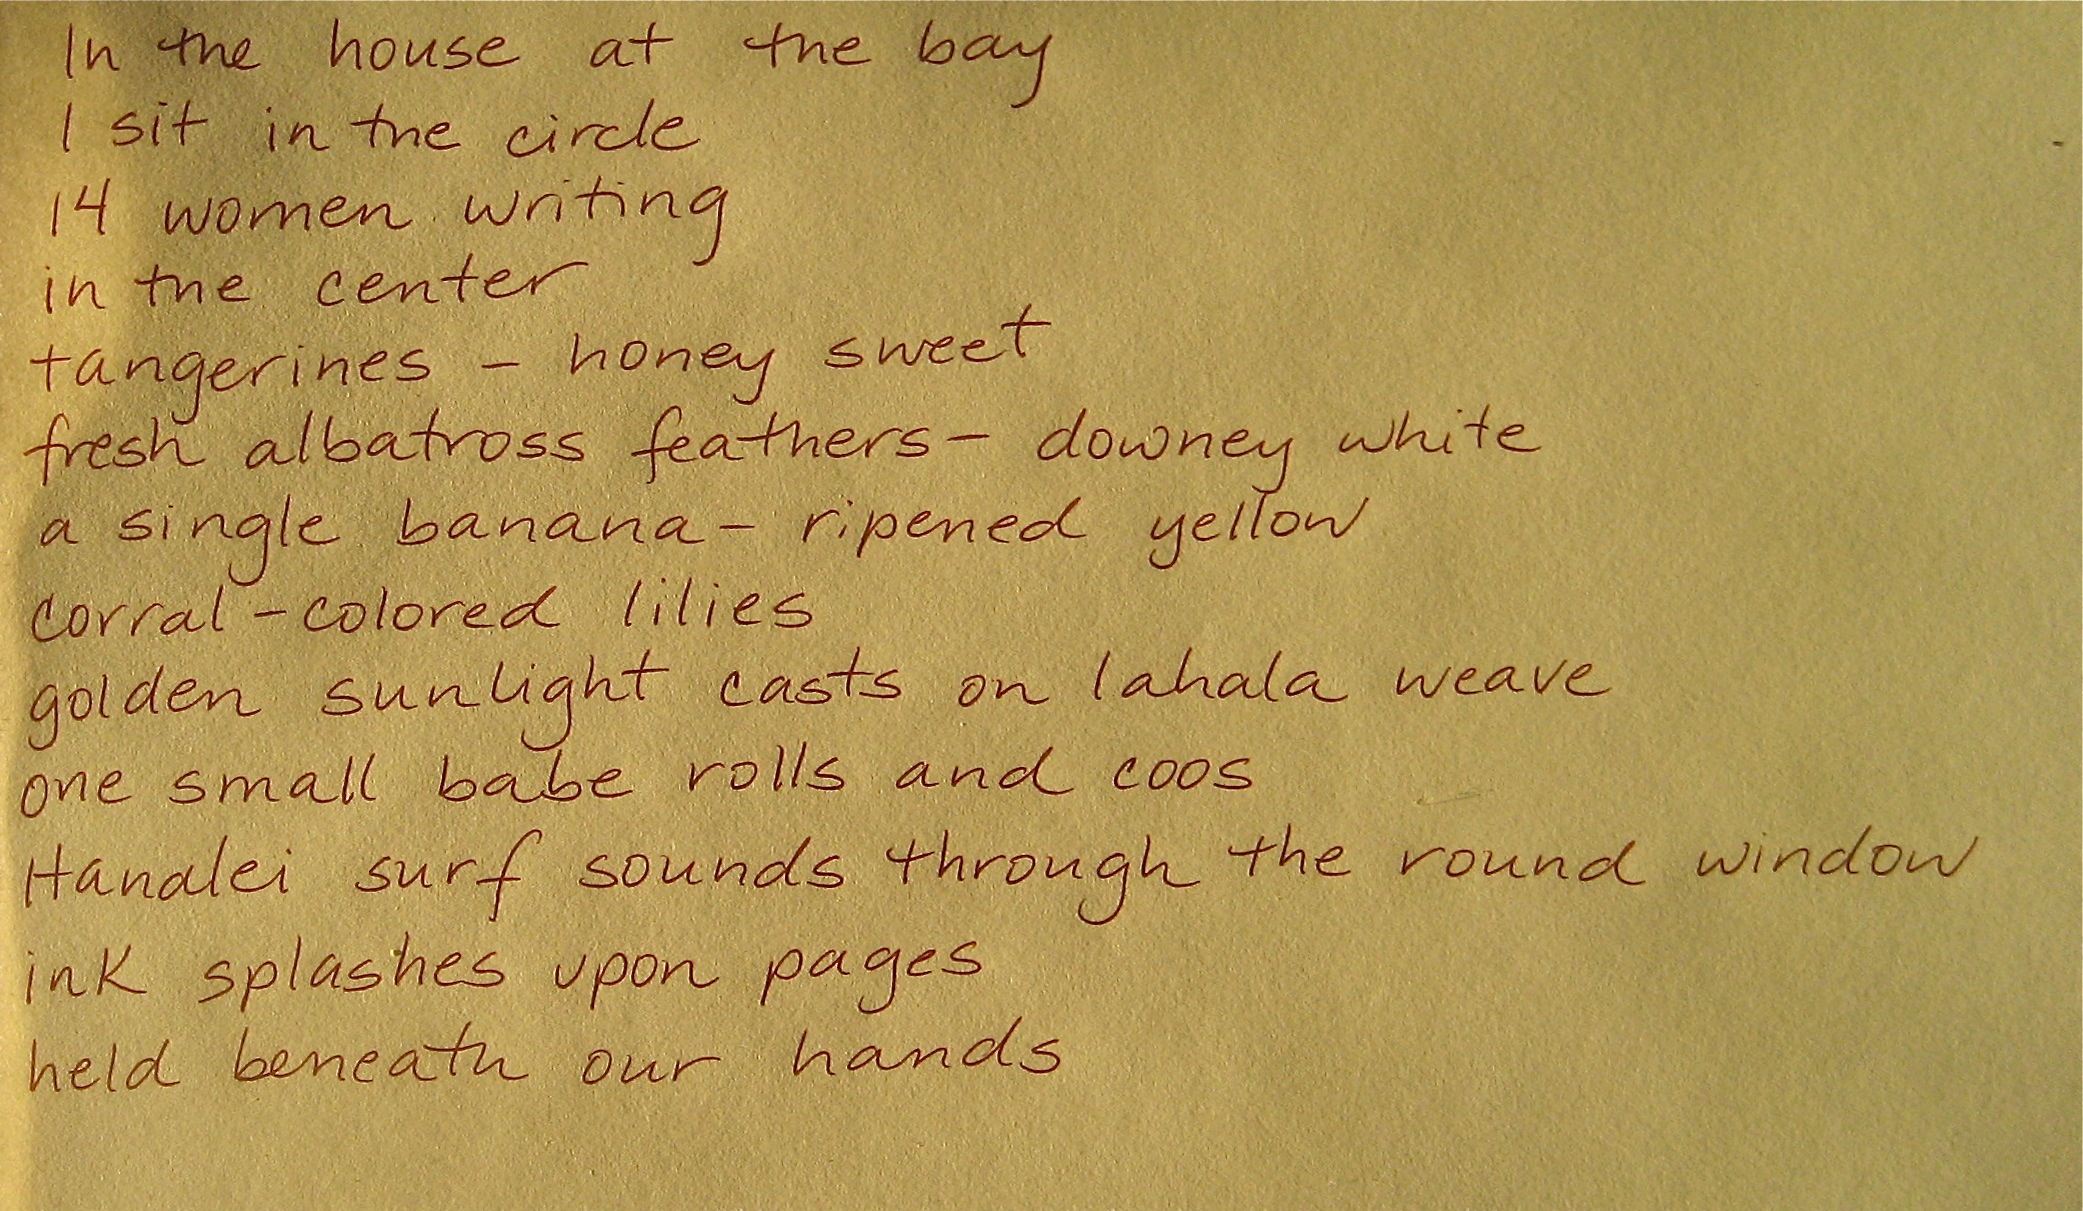 In the house at the bay
I sit in the circle
14 women writing
in the center
tangerines - honey sweet
fresh albatross feathers - downey white
a single banana - ripened yellow
corral-colored lilies
golden sunlight casts on lahala weave
one small babe rolls and coos
Hanalei surf sounds through the round window
ink splashes upon pages
held beneath our hands